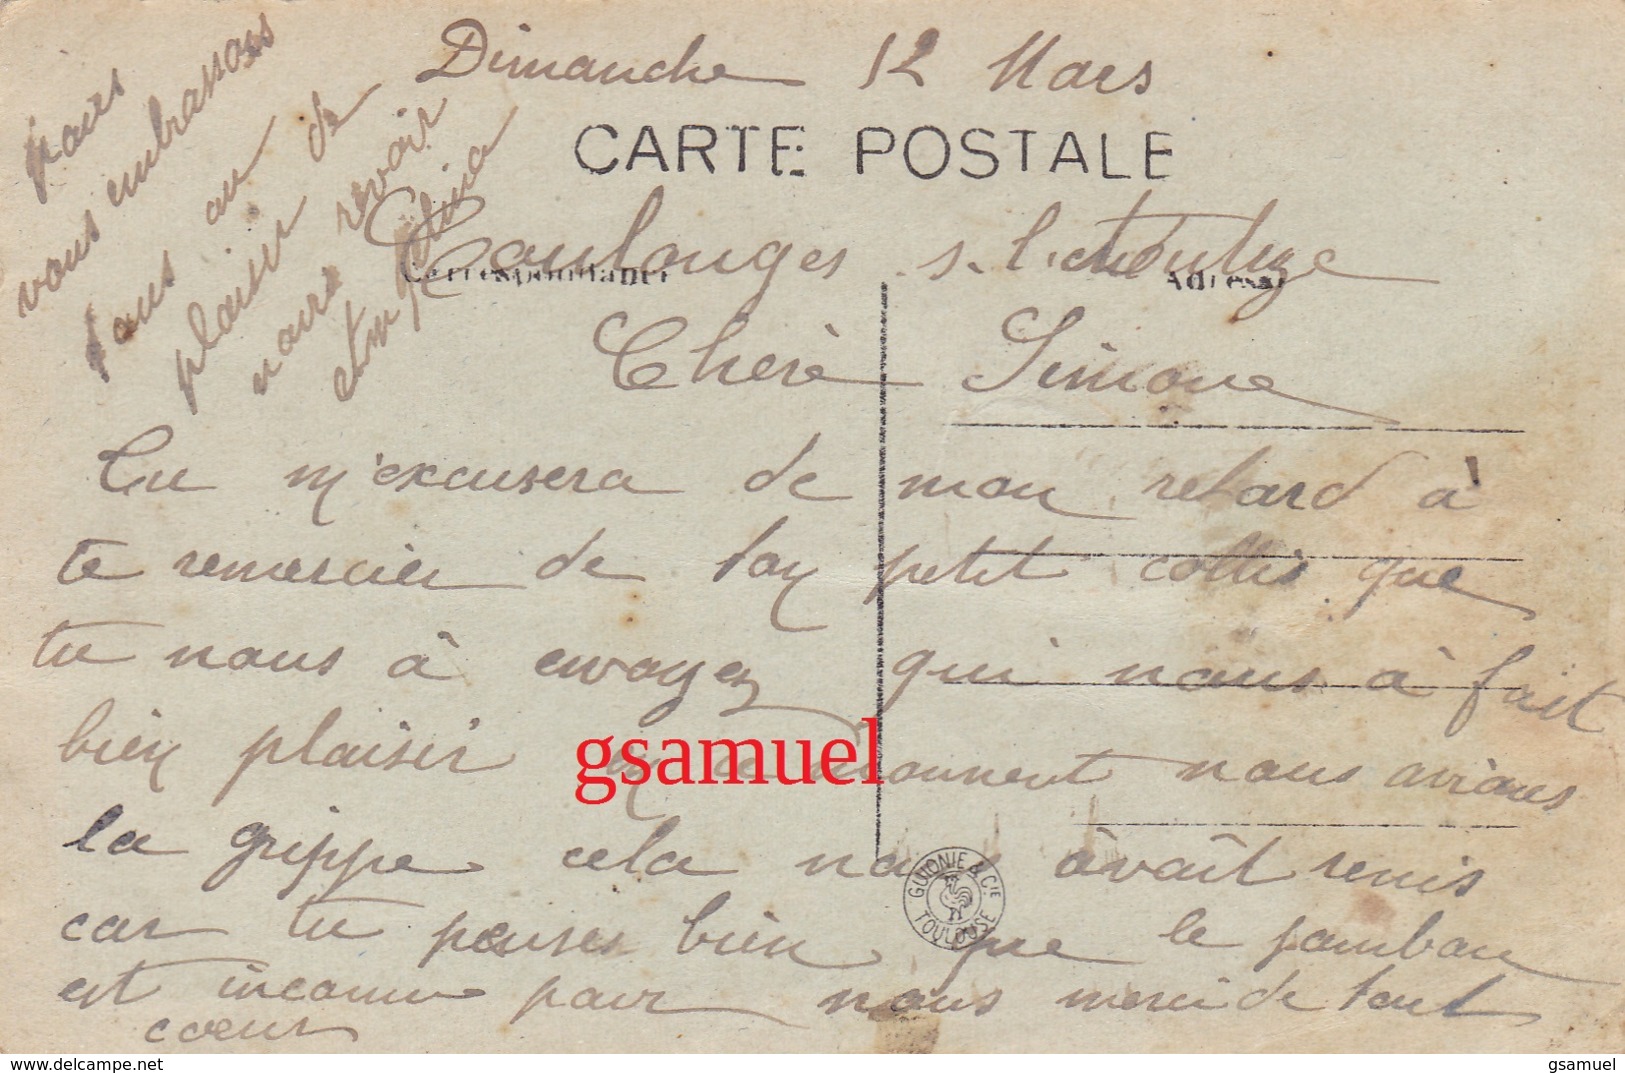 Dimanche 12 Mars
CARTE POSTALE
Coulonges s. l'
Correspondance Adresse
Cherè Simone
Tu m'excusera de mon retard à
te remercier de ton petit collis que
tu nous à envoyez qui nous à fait
bien plaisir nous avions
la grippe cela nous avaît remis
car tu penses bien que le jambon
est inconnu pour nous merci de tout
coeur
GUIONIE & CIE TOULOUSE
vous embrassons
tous au
plaisir de
nous revoir
gsamuel
gsamuel